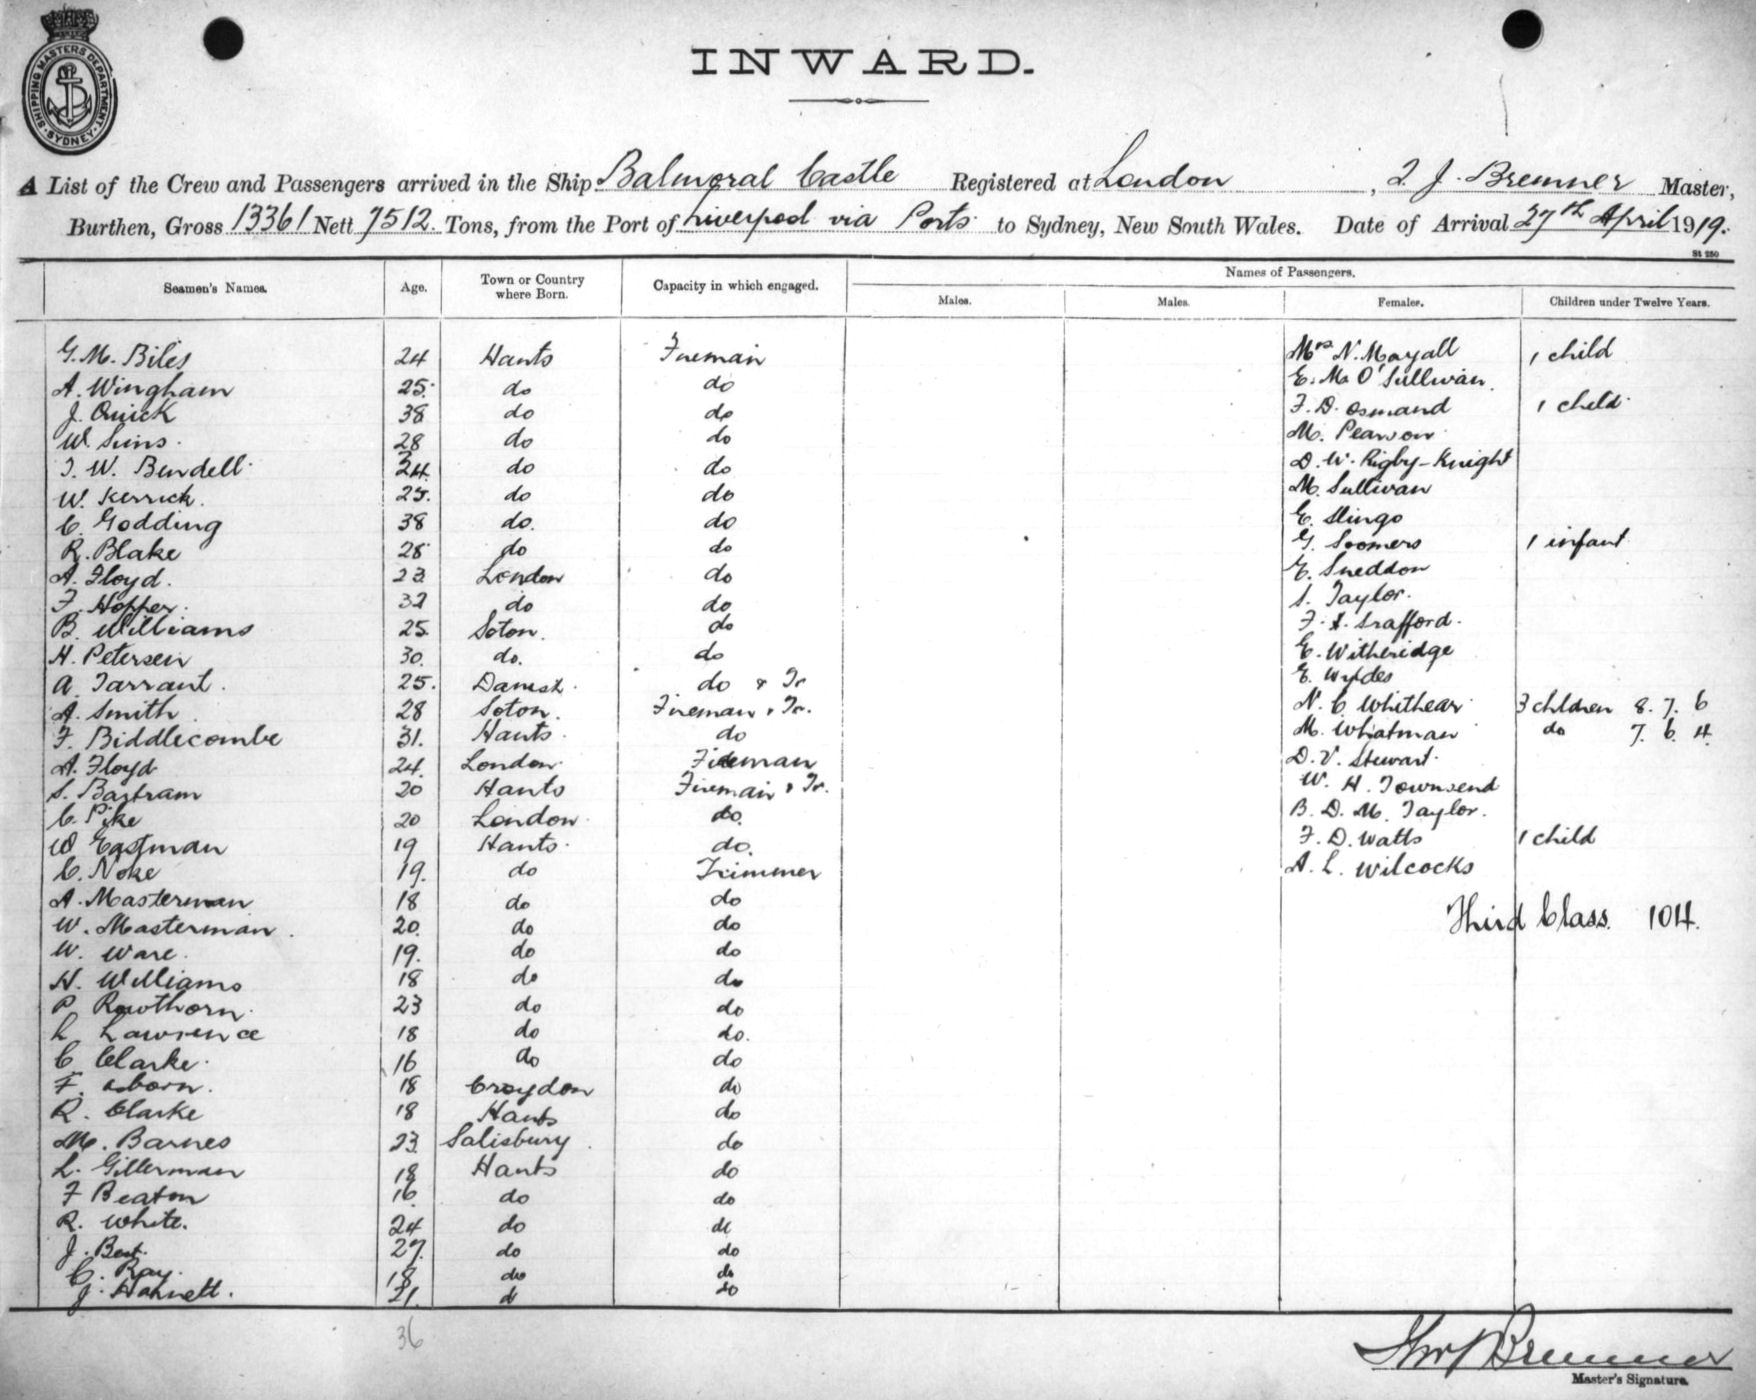 SHIPPING MASTERS DEPARTMENT. SYDNEY
INWARD.
A List of the Crew and Passengers arrived in the Ship Balmoral Castle Registered at London, T. J. Bremner Master,
Burthen, Gross 13361 Nett 7512 Tons, from the Port of Liverpool via Ports to Sydney, New South Wales. Date of Arrival 27th April 1919.
St 250
Seamen's Names. Age. Town or Country where Born. Capacity in which engaged. Names of Passengers.
Males. Males. Females. Children under Twelve Years.
G. M. Biles 24 Hants Fireman Mrs N. Mayall 1 child
A. Wingham 25 do do E. M. O'Sullivan
J. Quick 38 do do F. D. Osmand 1 child
W. Sims 28 do do M. Pearson
T. W. Bundell 24 do do D. W. Rigby-Knight
W. Kerrick 25 do do M. Sullivan
C. Godding 38 do. do E. Slingo
R. Blake 28 do do G. Soomers 1 infant
A. Floyd. 23 London do E. Sneddon
F. Hopper. 32 do do S. Taylor.
B. Williams 25 Soton. do F. S. Srafford.
H. Petersen 30. do. do E. Witheridge
A. Tarrant. 25. do & Tr E. Wyldes
A. Smith 28 Soton. Fireman & Tr. N. C Whithear 3 children 8. 7. 6
F. Biddlecombe 31. Hants. do M. Whatman do 7. 6. 4.
A. Floyd 24. London Fireman D. V. Stewart.
S. Bartram 20 Hants Fireman & Tr. W. H. Townsend
C. Pike 20 London do. B. D. M. Taylor.
W Eastman 19 Hants. do. F. D. Watts 1 child
C. Noke 19. do Trimmer A. L. Wilcocks
A. Masterman 18 do do
Third Class. 104.
W. Masterman. 20. do do
W. Ware. 19. do do
H. Williams 18 do do
P. Rawthorn. 23 do do
L Lawrence 18 do do.
C. Clarke. 16 do do
F. Osborn. 18 Croydon do
R. Clarke 18 Hants do
M. Barnes 23 Salisbury do
L. Gillerman 18 Hants do
F Beaton 16 do do
R. White. 24 do do
J. Best. 27. do do
C. Ray. 18 do do
J. Hannett. 21. do do
36
Thos J Bremner
Master's Signature.